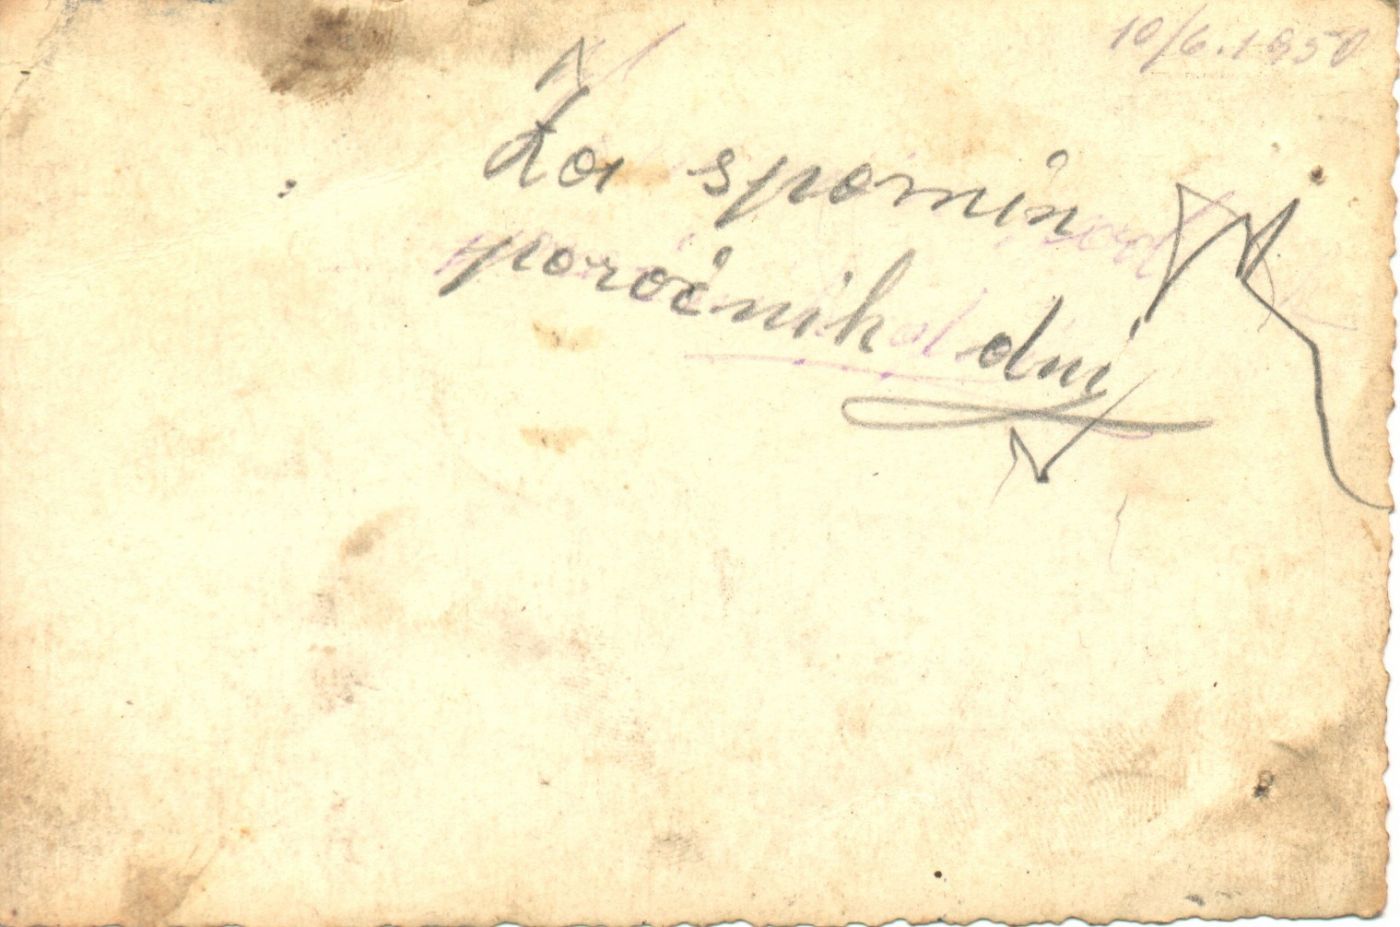 10/6.1950
Za spomin
poročnih dni